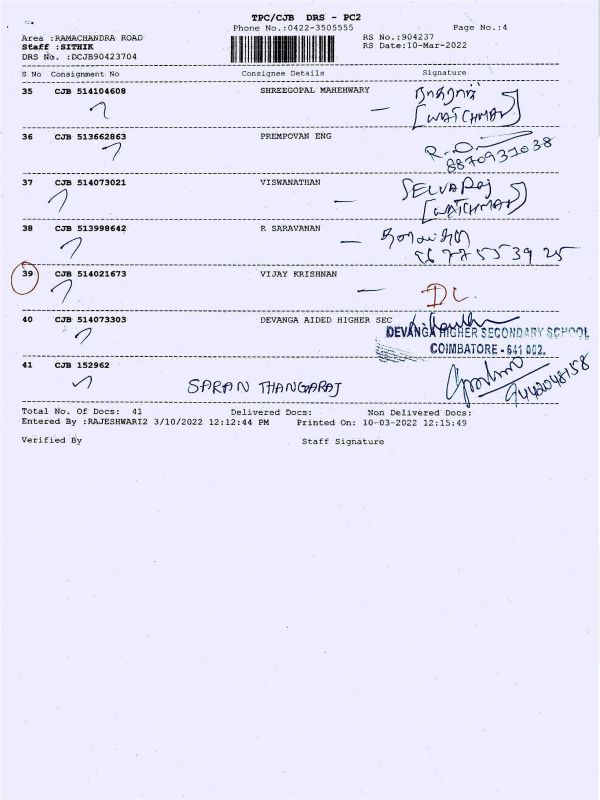 TPC/CJB DRS - PC2
Phone No.:0422-3505555
Page No.:4
Area :RAMACHANDRA ROAD
RS No.:904237
Staff :SITHIK
RS Date:10-Mar-2022
DRS No. :DCJB90423704
S No Consignment No Consignee Details Signature
35 CJB 514104608 SHREEGOPAL MAHEHWARY
[WATCHMAN]
36 CJB 513662863 PREMPOVAN ENG
8870931038
37 CJB 514073021 VISWANATHAN SELVARAJ
[WATCHMAN]
38 CJB 513998642 R SARAVANAN
39 CJB 514021673 VIJAY KRISHNAN
DC
40 CJB 514073303 DEVANGA AIDED HIGHER SEC
DEVANGA HIGHER SECONDARY SCHOOL
COIMBATORE - 641 002.
41 CJB 152962
SARAN THANGARAJ
9442048158
Total No. Of Docs: 41 Delivered Docs: Non Delivered Docs:
Entered By :RAJESHWARI2 3/10/2022 12:12:44 PM Printed On: 10-03-2022 12:15:49
Verified By Staff Signature